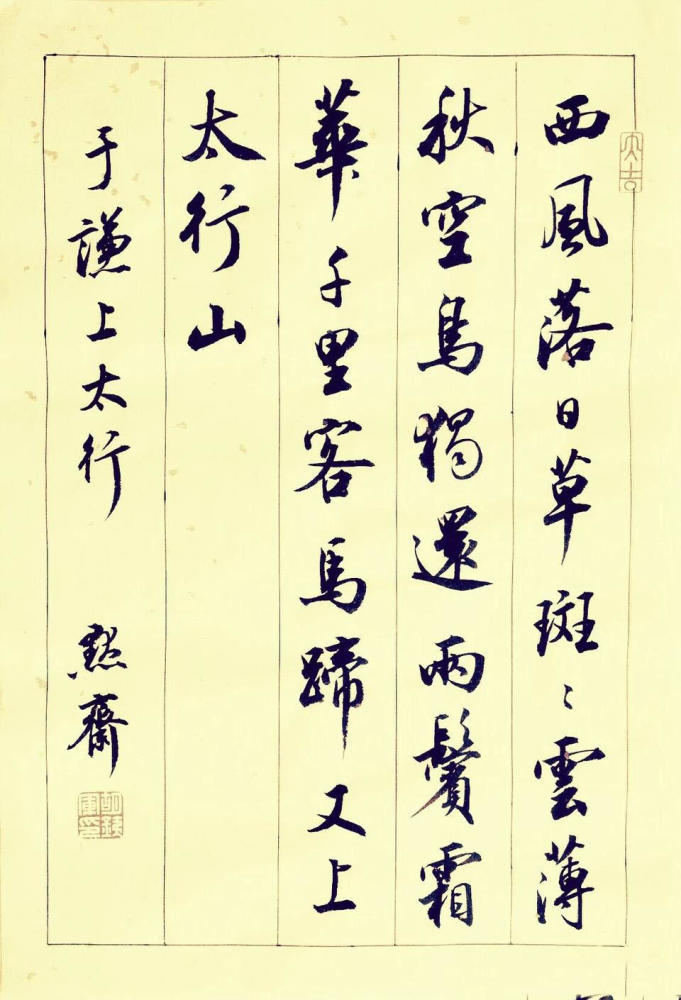 大吉
西風落日草斑〻雲薄
秋空鳥獨還兩鬢霜
華千里客馬蹄又上
太行山
于謙上太行 黙齋